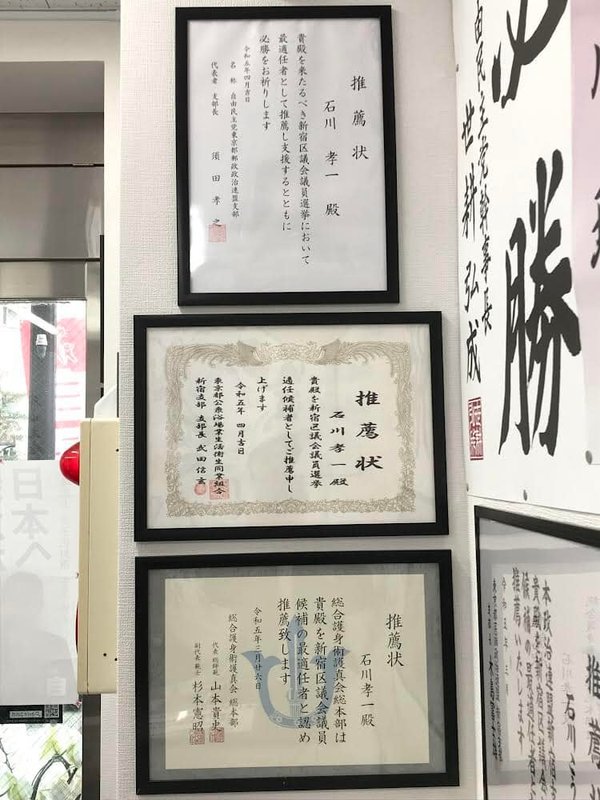 推薦状
石川 孝一 殿
貴殿を来たるべき新宿区議会議員選挙において
最適任者として推薦し支援するとともに
必勝をお祈りします
令和五年四月吉日
名称 自由民主党東京都郵政政治連盟支部
代表者 支部長 須田孝之
推薦状
石川孝一殿
貴殿を新宿区議会議員選挙
適任候補者としてご推薦申し
上げます
令和五年 四月吉日
東京都公衆浴場業生活衛生同業組合
新宿支部 支部長 武田信玄
推薦状
石川孝一殿
総合護身術護真会総本部は
貴殿を新宿区議会議員
候補の最適任者と認め
推薦致します
令和五年三月廿六日
総合護身術護真会 総本部
代表 総師範 山本貴史
副代表 範士 杉本憲昭
必勝
由民主党幹事長
世耕弘成
本政治連盟新宿支部
貴殿を新宿区議会
候補の最適任
推薦いたします
令和五年
推薦
石川こう
日本へ
自